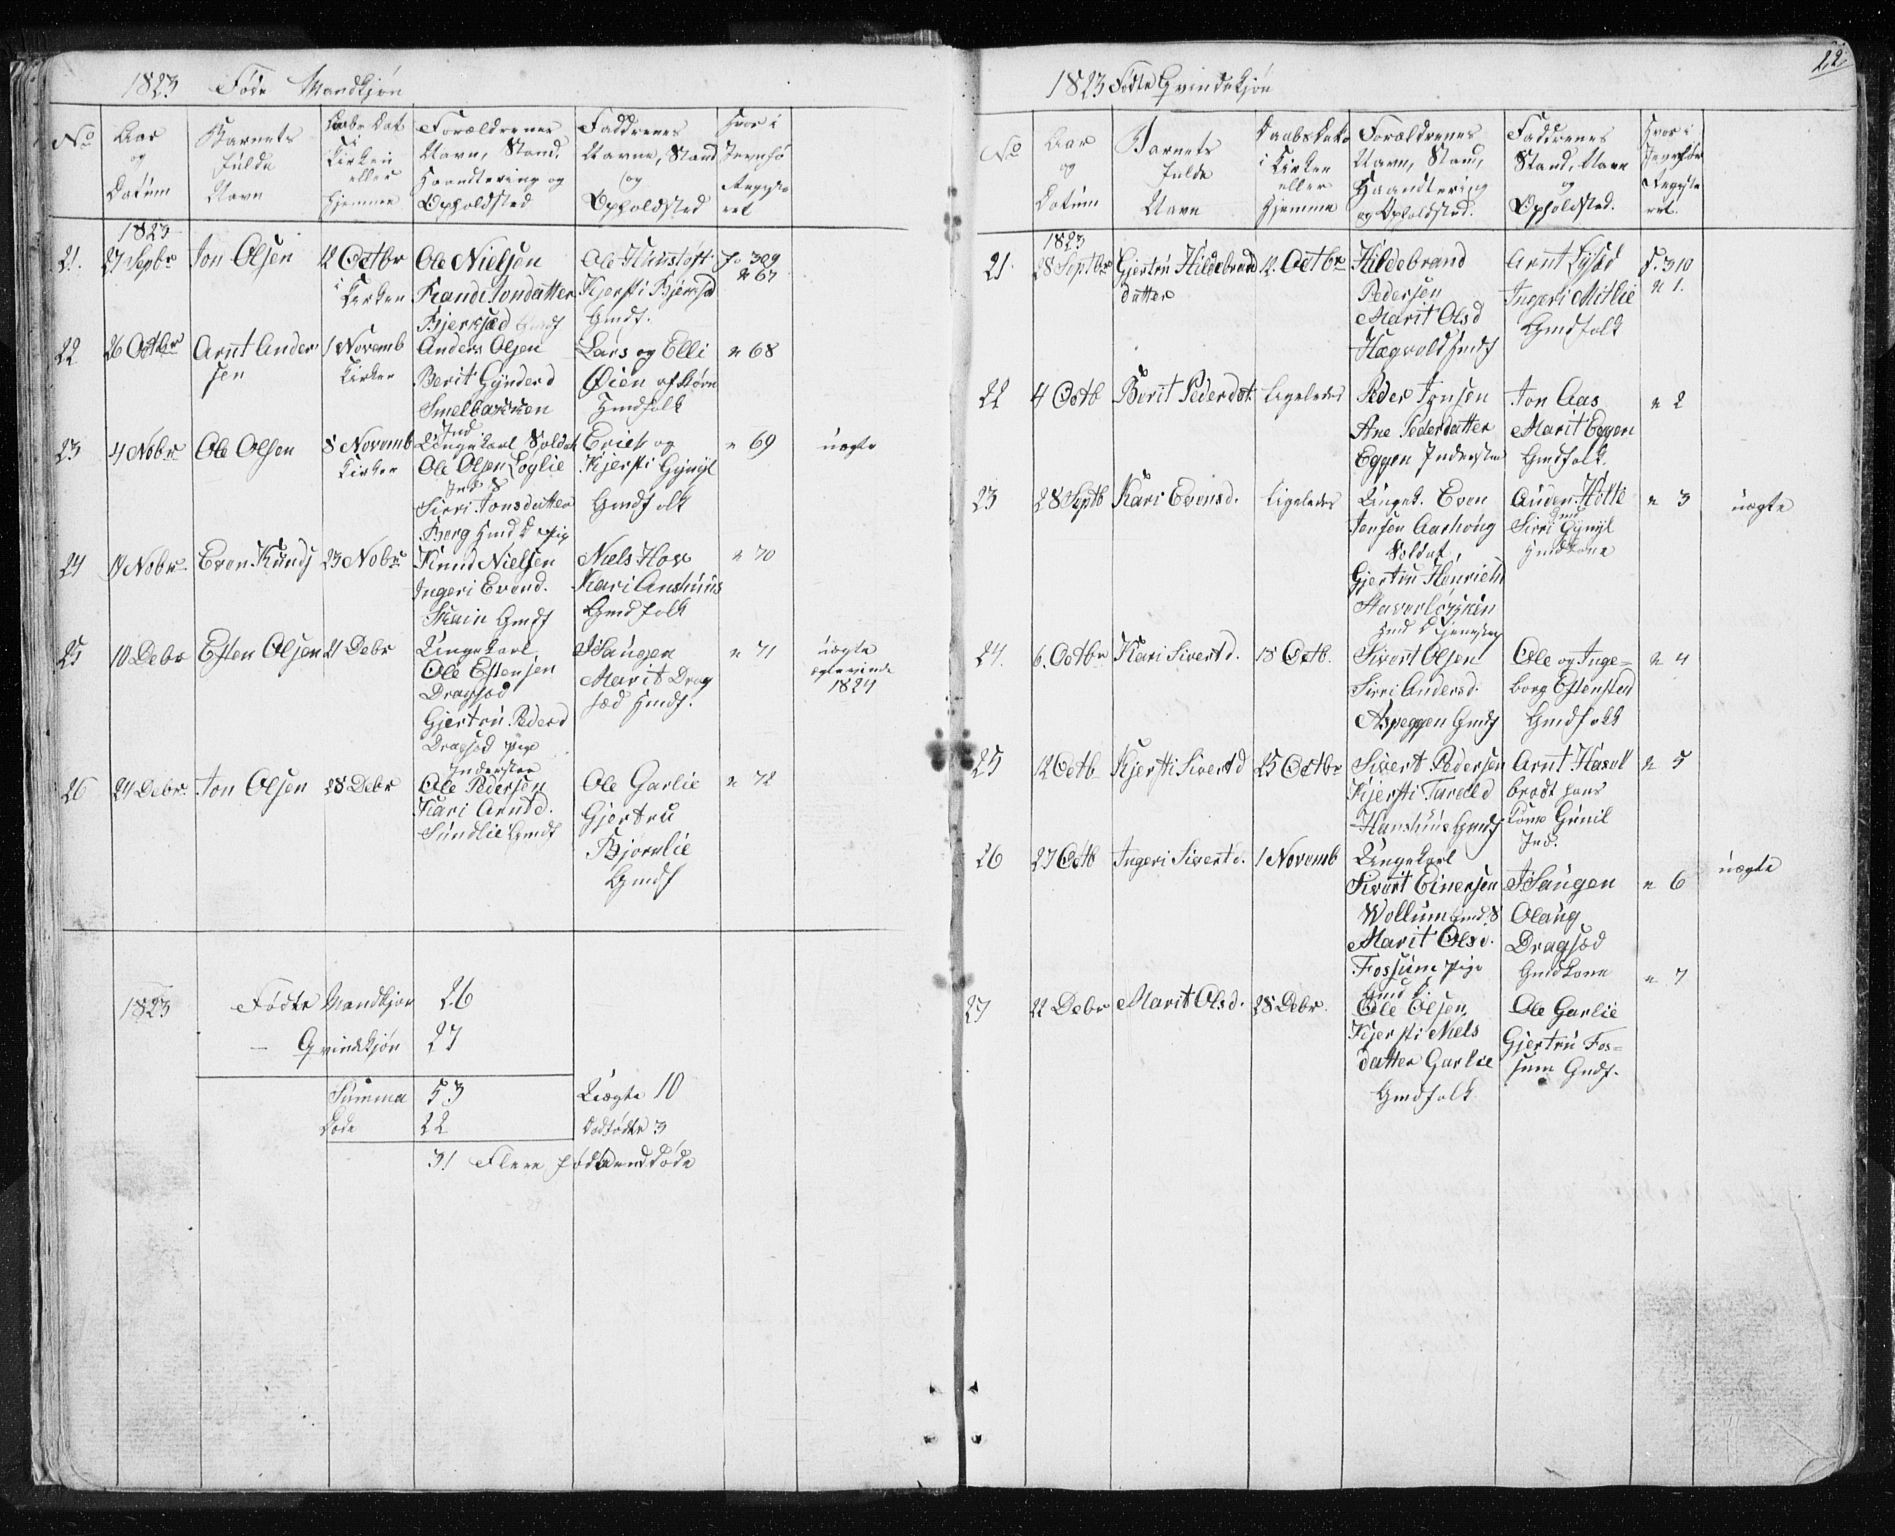 22.
1823 Føde Mandkjøn
No
Aar
og
Datum
Barnets
fulde
Navn
Daabs Dat
i
Kirken
eller
Hjemme
Forældrenes
Navn, Stand,
Haandtering og
Opholdsted
Faddrenes
Navne, Stand
og
Opholdsted
Hvor i
Jevnfø
Regist
ret
1823
21. 27 Sepbr Jon Olsen 12 Octbr i Kirken
Ole Nielsen
Randi Jonsdatter
Bjerksæd Gmdf
Kjersti Bjerksæd
Gmdf.
fo 309
n 67
22 26 Octbr Arnt Ander
sen
1 Novemb
Kirken
Anders Olsen
Berit Gunderd
Smelbakken
Ind
Lars og Elli
Øien af Børn
Hmdfolk
n 68
23 4 Nobr Ole Olsen 8 Novemb
Kirken
Ungekarl Soldat
Ole Olsen Loglie
Ind S
Sirri Jonsdatter
Berg Hmd D Pige
Erich og
Kjersti Gynyl
Gmdfolk
n 69
uægte
24 14 Nobr Even Knuds 23 Nobr
Knud Nielsen
Ingeri Evend.
Skain Gmdf
Niels Hov
Kari Anshuus
Gmdfolk
n 70
25 10 Debr Esten Olsen 21 Debr
Ungekarl
Ole Estensen
Dragsæd
Gjertru Pederd
Dragsæd Pige
Inderster
J Haugen
Marit Drag
sæd Hmdf.
n 71
uægte
1824
26 24 Debr Jon Olsen 28 Debr
Ole Pedersen
Kari Arntd.
Sundlie Gmdf
Ole Garlie
Gjertru
Bjørnlie
Gmdf
n 72
1823 Fødte Mandkjøn 26
- Qvindekjøn 27
Summa 53 Uægte 10
Døde 22 Dødfødte 3
31 Flere fødte end døde
1823 Fødte Qvindekjøn
No
Aar
og
Datum
Barnets
fulde
Navn
Daabs Dato
i Kirken
eller
Hjemme
Forældrenes
Navn, Stand,
Haandtering
og Opholdsted.
Faddrenes
Stand, Navn
og
Opholdsted.
Hvor i
Jevnfør
Registe
ret.
1823
21. 28 Septbr Gjertru Hildebrand
datter
12. Octbr
Hildebrand
Pedersen
Marit Olsd
Hægvold Gmdf
Arnt
Ingeri Mitlie
Gmdfolk
F. 310
n 1.
22 4 Octb Berit Pederdat. ligeledes
Peder Jonsen
Ane Pederdatter
Eggen Inderster
Jon Aas
Marit Eggen
Gmdfolk.
n 2
23 28 Septb Kari Evensd. ligeledes
Ungek. Even
Jensen Aashøug
Soldat,
Gjertru Henrichs
Staverløkken
Hmd D Tjenestep
Anden Hitte
Ind
Sirri Gynyl
Hmdkone
n 3
uægte
24. 6. Octbr Kari Sivertd. 18 Octb.
Sivert Olsen
Sirri Andersd.
Aspeggen Gmdf
Ole og Inge=
borg Estensted
Gmdfolk
n 4
25 12 Octb Kjersti Sivertd 25 Octbr
Sivert Pedersen
Kjersti Taralld
Hanshuus Gmdf
Arnt Havel
brodt hans
kone Gunil
Ind.
n 5
26 27 Octb Ingeri Sivertd. 1 Novemb
Ungekarl
Sivert Einersen
Wollum Gmd. S
Marit Olsd.
Fossum Pige
Gmd D.
J Haugen
Olaug
Dragsæd
Gmdkone
n 6
uægte
27 22 Debr Marit Olsd. 28 Debr.
Ole Olsen,
Kjersti Niels
datter Garlie
Gmdfolk
Ole Garlie
Gjertru Fos=
sum Gmdf.
n 7